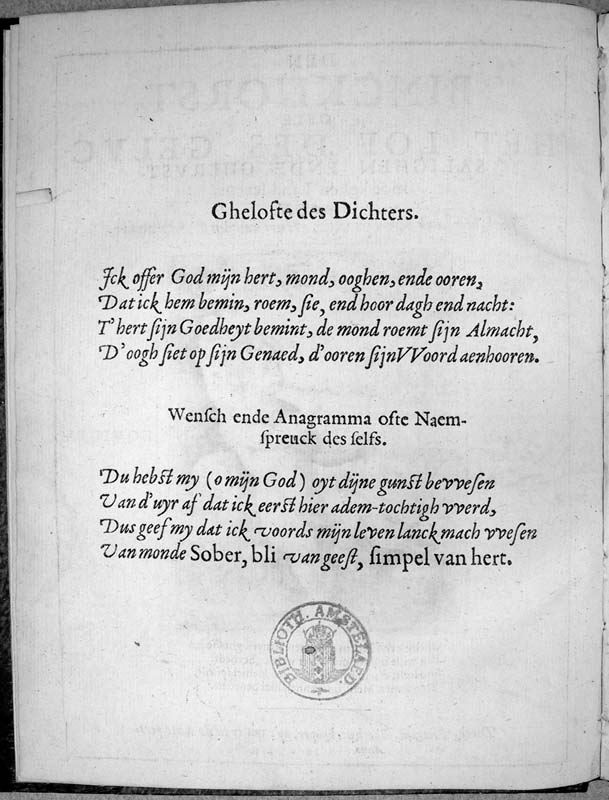 Ghelofte des Dichters.
Ick offer God mijn hert, mond, ooghen, ende ooren,
Dat ick hem bemin, roem, ſie, end hoor dagh end nacht:
T'hert ſijn Goedheyt bemint, de mond roemt ſijn Almacht,
D'oogh ſiet op ſijn Genaed, d'ooren ſijn VVoord aenhooren.
Wenſch ende Anagramma ofte Naem-
ſpreuck des ſelfs.
Du hebſt my (o mijn God) oyt dijne gunſt bevveſen
Van d'uyr af dat ick eerſt hier adem-tochtigh vverd,
Dus geef my dat ick voords mijn leven lanck mach vveſen
Van monde Sober, bli van geeſt, ſimpel van hert.
BIBLIOTH. AMSTELAED.